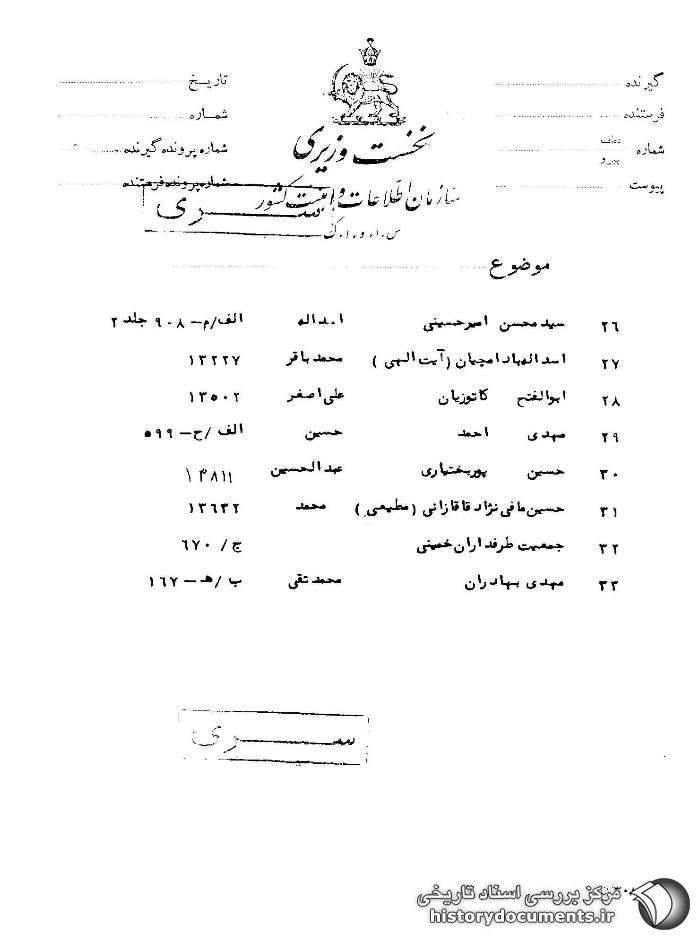 گیرنده
فرستنده
شماره
پیوست
نخست وزیری
سازمان اطلاعات و امنیت کشور
س.ا.و.ا.ک
تاریخ
شماره
شماره پرونده گیرنده
شماره پرونده فرستنده
سری
موضوع
۲۶ سید محسن امیرحسینی اسداله الف/م–۹۰۸ جلد ۲
۲۷ اسداله بادامچیان (آیت الهی) محمدباقر ۱۳۲۲۷
۲۸ ابوالفتح کاتوزیان علی اصغر ۱۳۵۰۲
۲۹ مهدی احمد حسین الف/ح–۵۹۹
۳۰ حسین پوربختیاری عبدالحسین ۱۳۸۱۱
۳۱ حسین مافی نژاد قاقازانی (مطیعی) محمد ۱۳۶۳۲
۳۲ جمعیت طرفداران خمینی ج/۶۷۰
۳۳ مهدی بهادران محمدتقی ب/هـ–۱۶۷
سری
مرکز بررسی اسناد تاریخی
historydocuments.ir